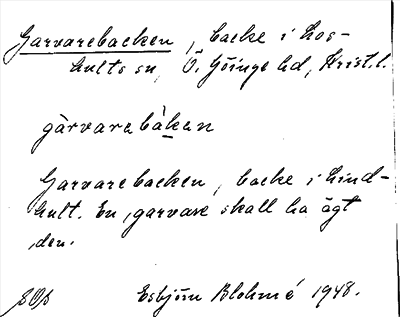 Garvarebacken, backe i Los-
hults sn, Ö. Göinge hd, Krist. l.
gàrvarabàkan
Garvarebacken, backe i Hind-
hult. En garvare skall ha ägt
den.
Esbjörn Blohmé 1948.